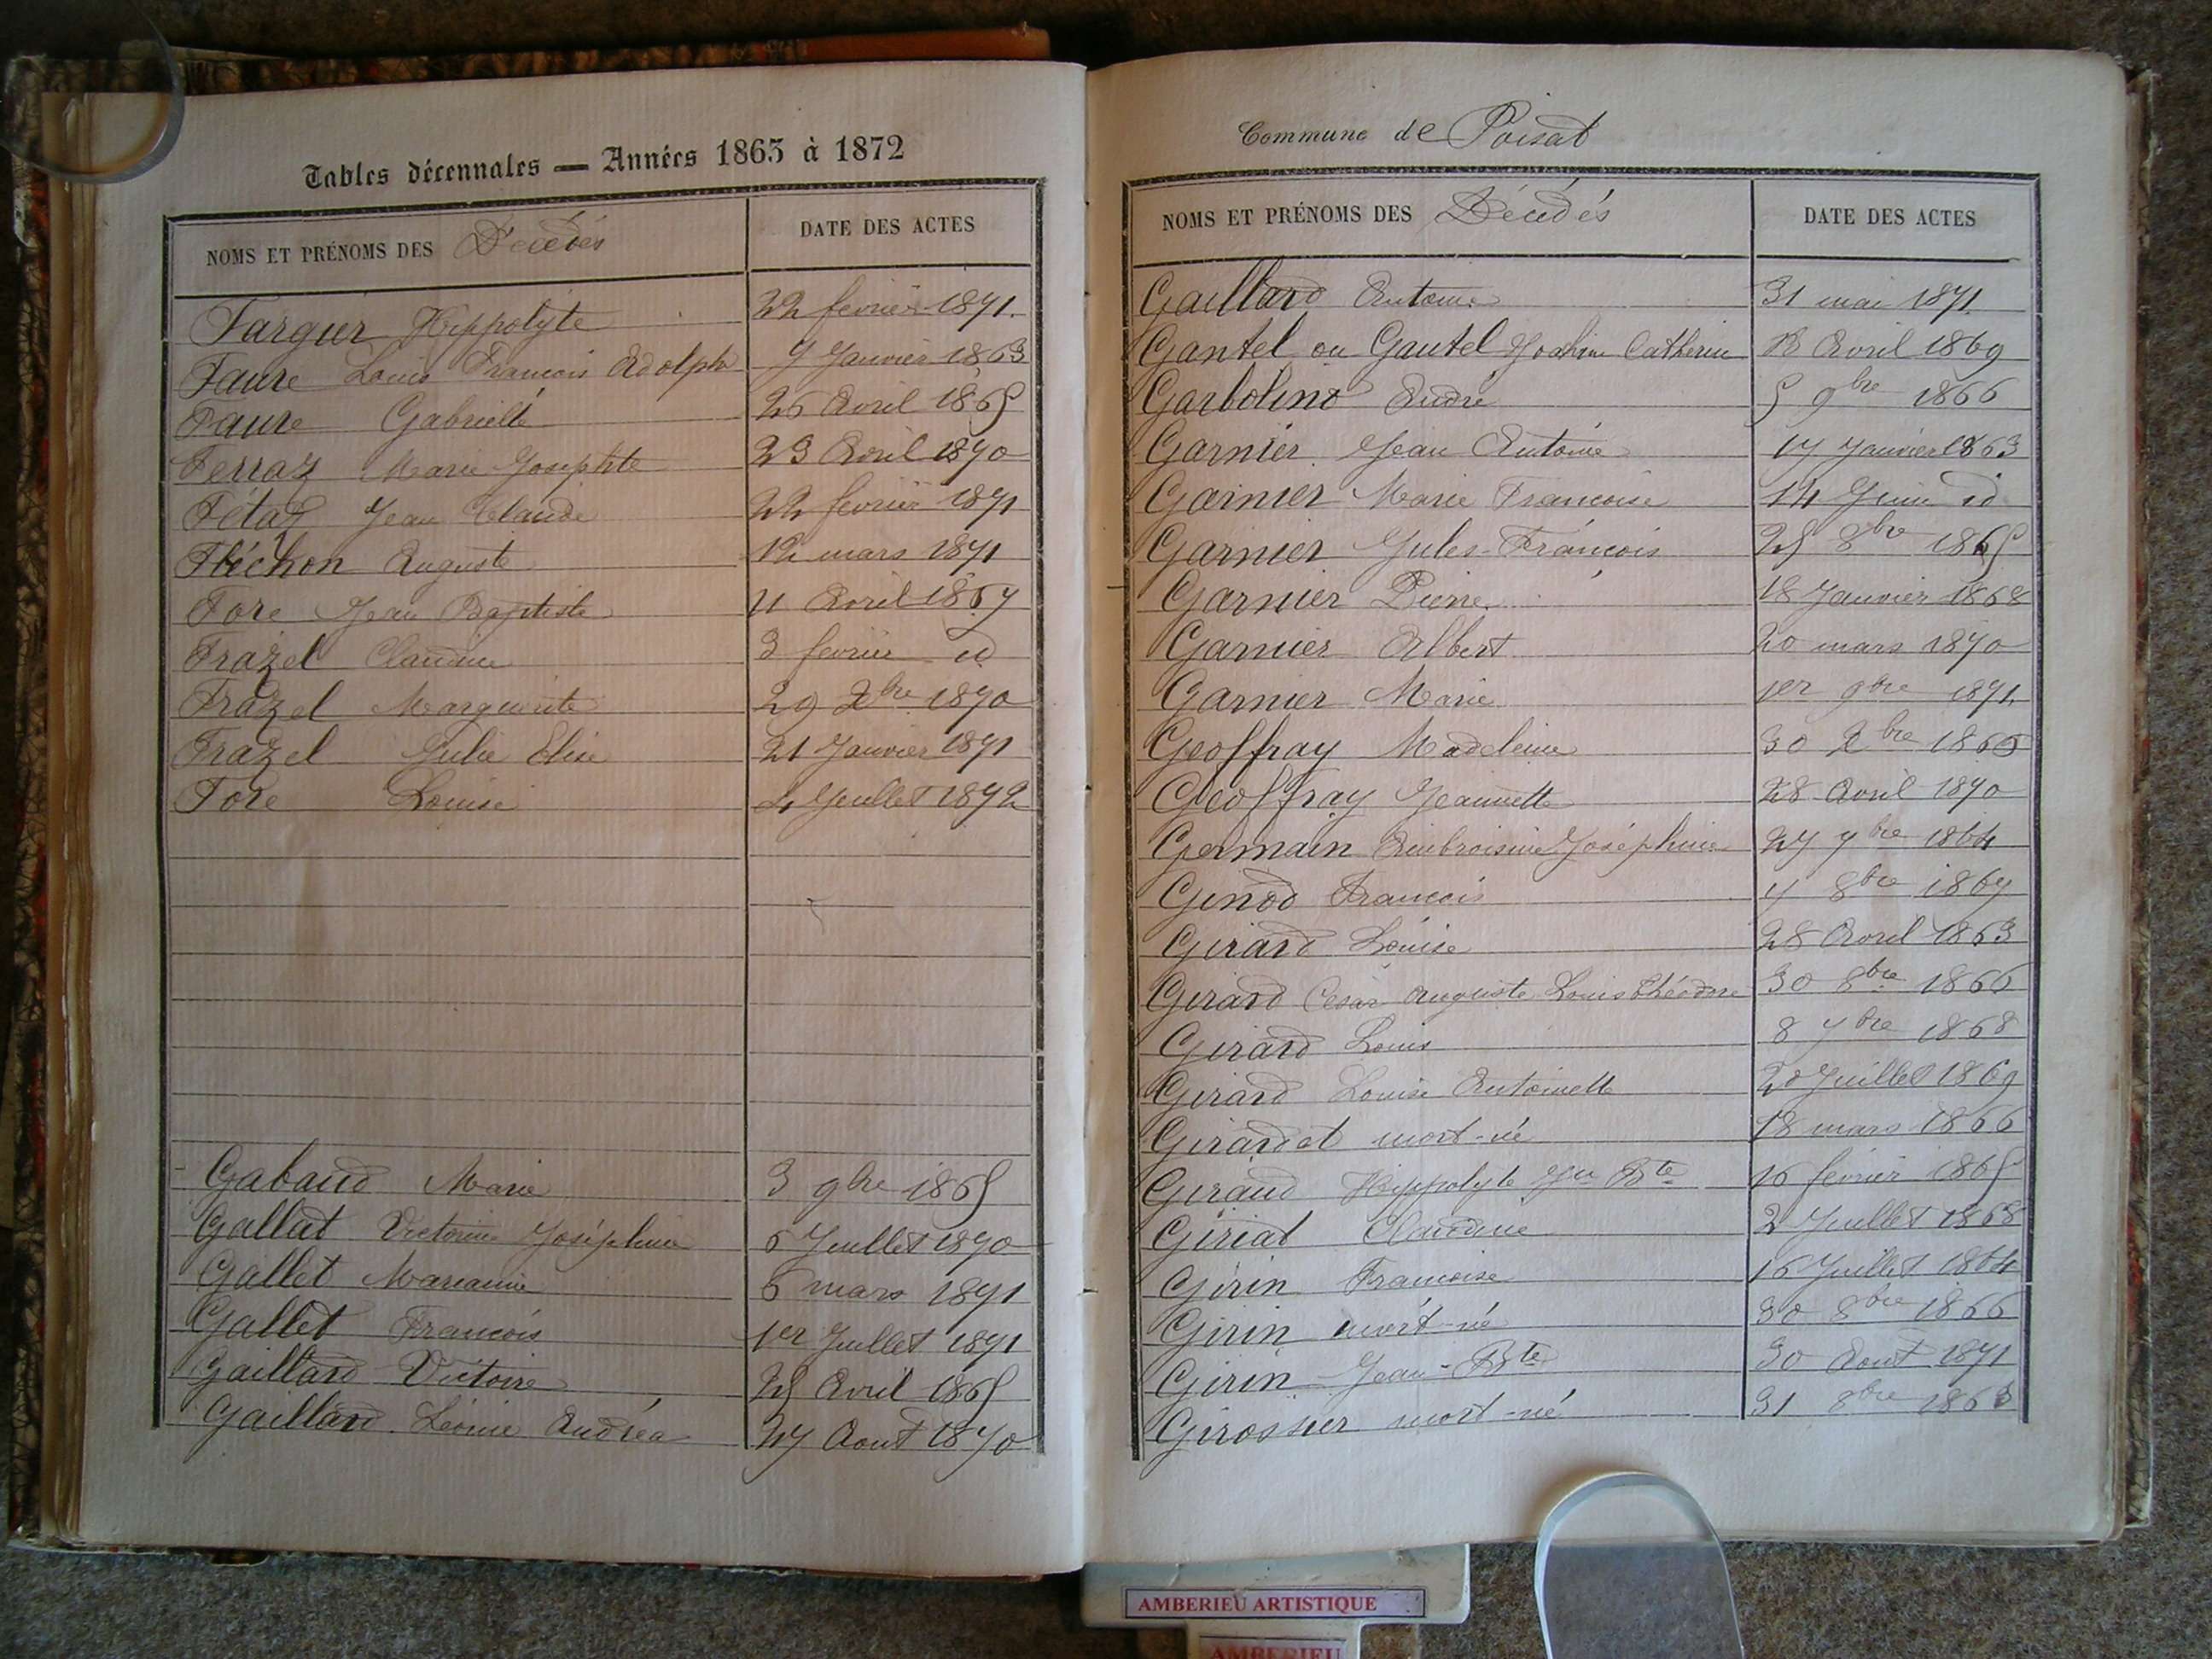 Tables décennales — Années 1863 à 1872
NOMS ET PRÉNOMS DES Décédés DATE DES ACTES
Fargier Hippolyte 22 février 1871.
Faure Louis François Adolphe 9 Janvier 1863
Faure Gabrielle 26 Avril 1865
Ferraz Marie Josephte 23 Avril 1870
Fétaz Jean Claude 22 février 1871
Fléchon Auguste 12 mars 1871
Fore Jean Baptiste 11 Avril 1867
Frazel Claudine 3 février id
Frazel Marguerite 29 Xbre 1870
Frazel Julie Elise 21 Janvier 1871
Fore Louise 4 Juillet 1872
Gabaud Marie 3 9bre 1865
Gallat Victorine Joséphine 6 Juillet 1870
Gallet Marianne 6 mars 1871
Gallet François 1er Juillet 1871
Gaillard Victoire 25 Avril 1865
Gaillard Léonie Andréa 27 Aout 1870
Commune de Poisat
NOMS ET PRÉNOMS DES Décédés DATE DES ACTES
Gaillard Antoine 31 mai 1871
Gantel ou Gautel Catherine 18 Avril 1869
Garbolino André 5 9bre 1866
Garnier Jean Antoine 17 Janvier 1863
Garnier Marie Françoise 14 Juin id
Garnier Jules-François 25 8bre 1865
Garnier Pierre 18 Janvier 1868
Garnier Albert 20 mars 1870
Garnier Marie 1er 9bre 1871
Geoffray Madeleine 30 Xbre 1866
Geoffray Jeannette 28 Avril 1870
Germain Ambroisine Joséphine 27 7bre 1864
Genod François 4 8bre 1867
Girard Louise 28 Avril 1863
Girard César Auguste Louis Théodore 30 8bre 1866
Girard Louis 8 7bre 1868
Girard Louise Antoinette 20 Juillet 1869
Girardet mort-né 18 mars 1866
Giraud Hippolyte Jn Bte 16 février 1865
Giriat Claudine 2 Juillet 1868
Girin Françoise 16 Juillet 1864
Girin mort-né 30 8bre 1866
Girin Jean-Bte 30 Aout 1871
Girossier mort-né 31 8bre 1863
AMBERIEU ARTISTIQUE
AMBERIEU